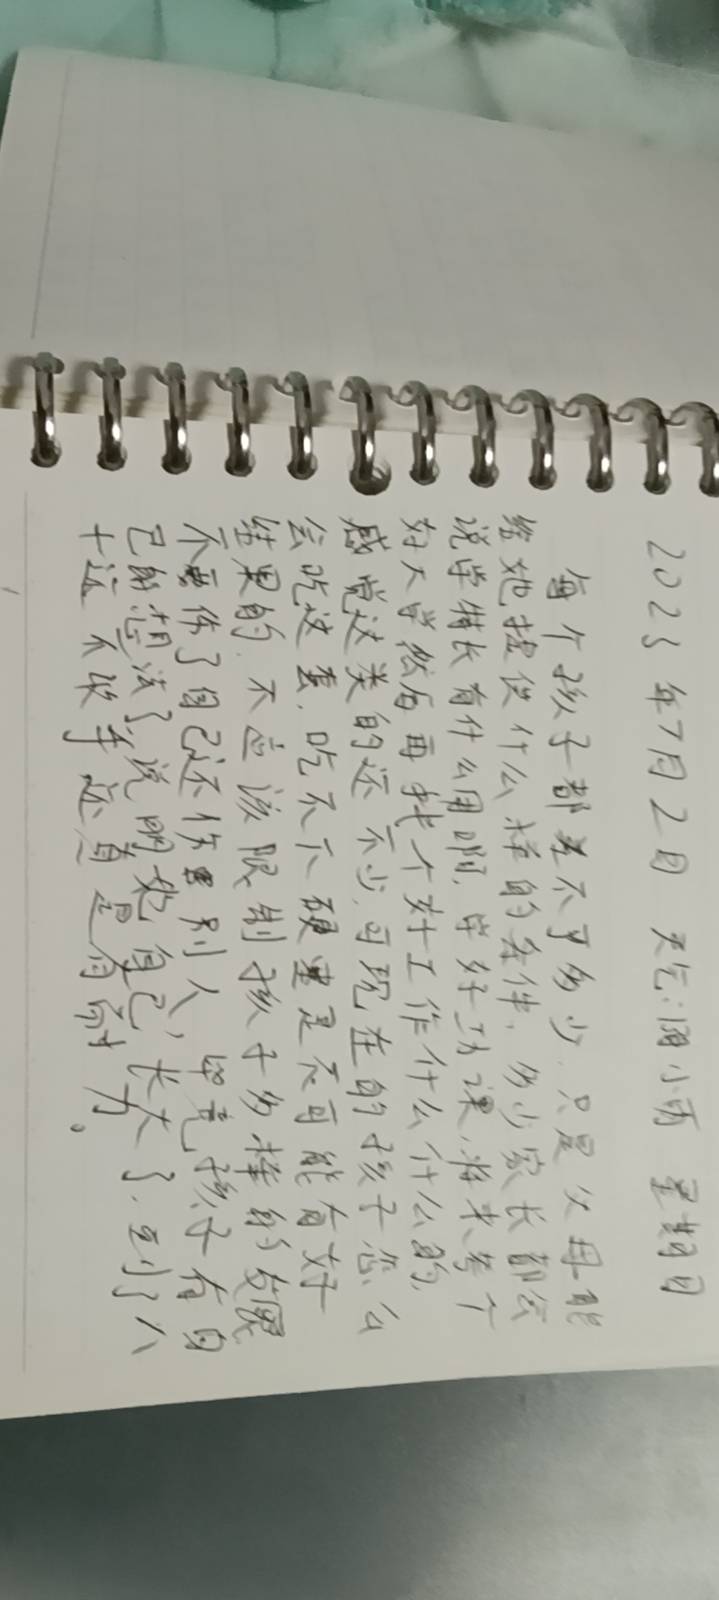 2023年7月2日 天气:阴小雨 星期日
每个孩子都差不了多少.只是父母能
给她提供什么样的条件,多少家长都会
说学特长有什么用啊.学好功课,将来考个
好大学然后再找个好工作什么什么的.
感觉这类的还不少,可现在的孩子怎么
会吃这套.吃不下硬塞是不可能有好
结果的.不应该限制孩子多样的发展
不要伤了自己还伤害别人,毕竟孩子有自
己的想法了说明她自己长大了.到了八
十还不收手还真是有耐力。